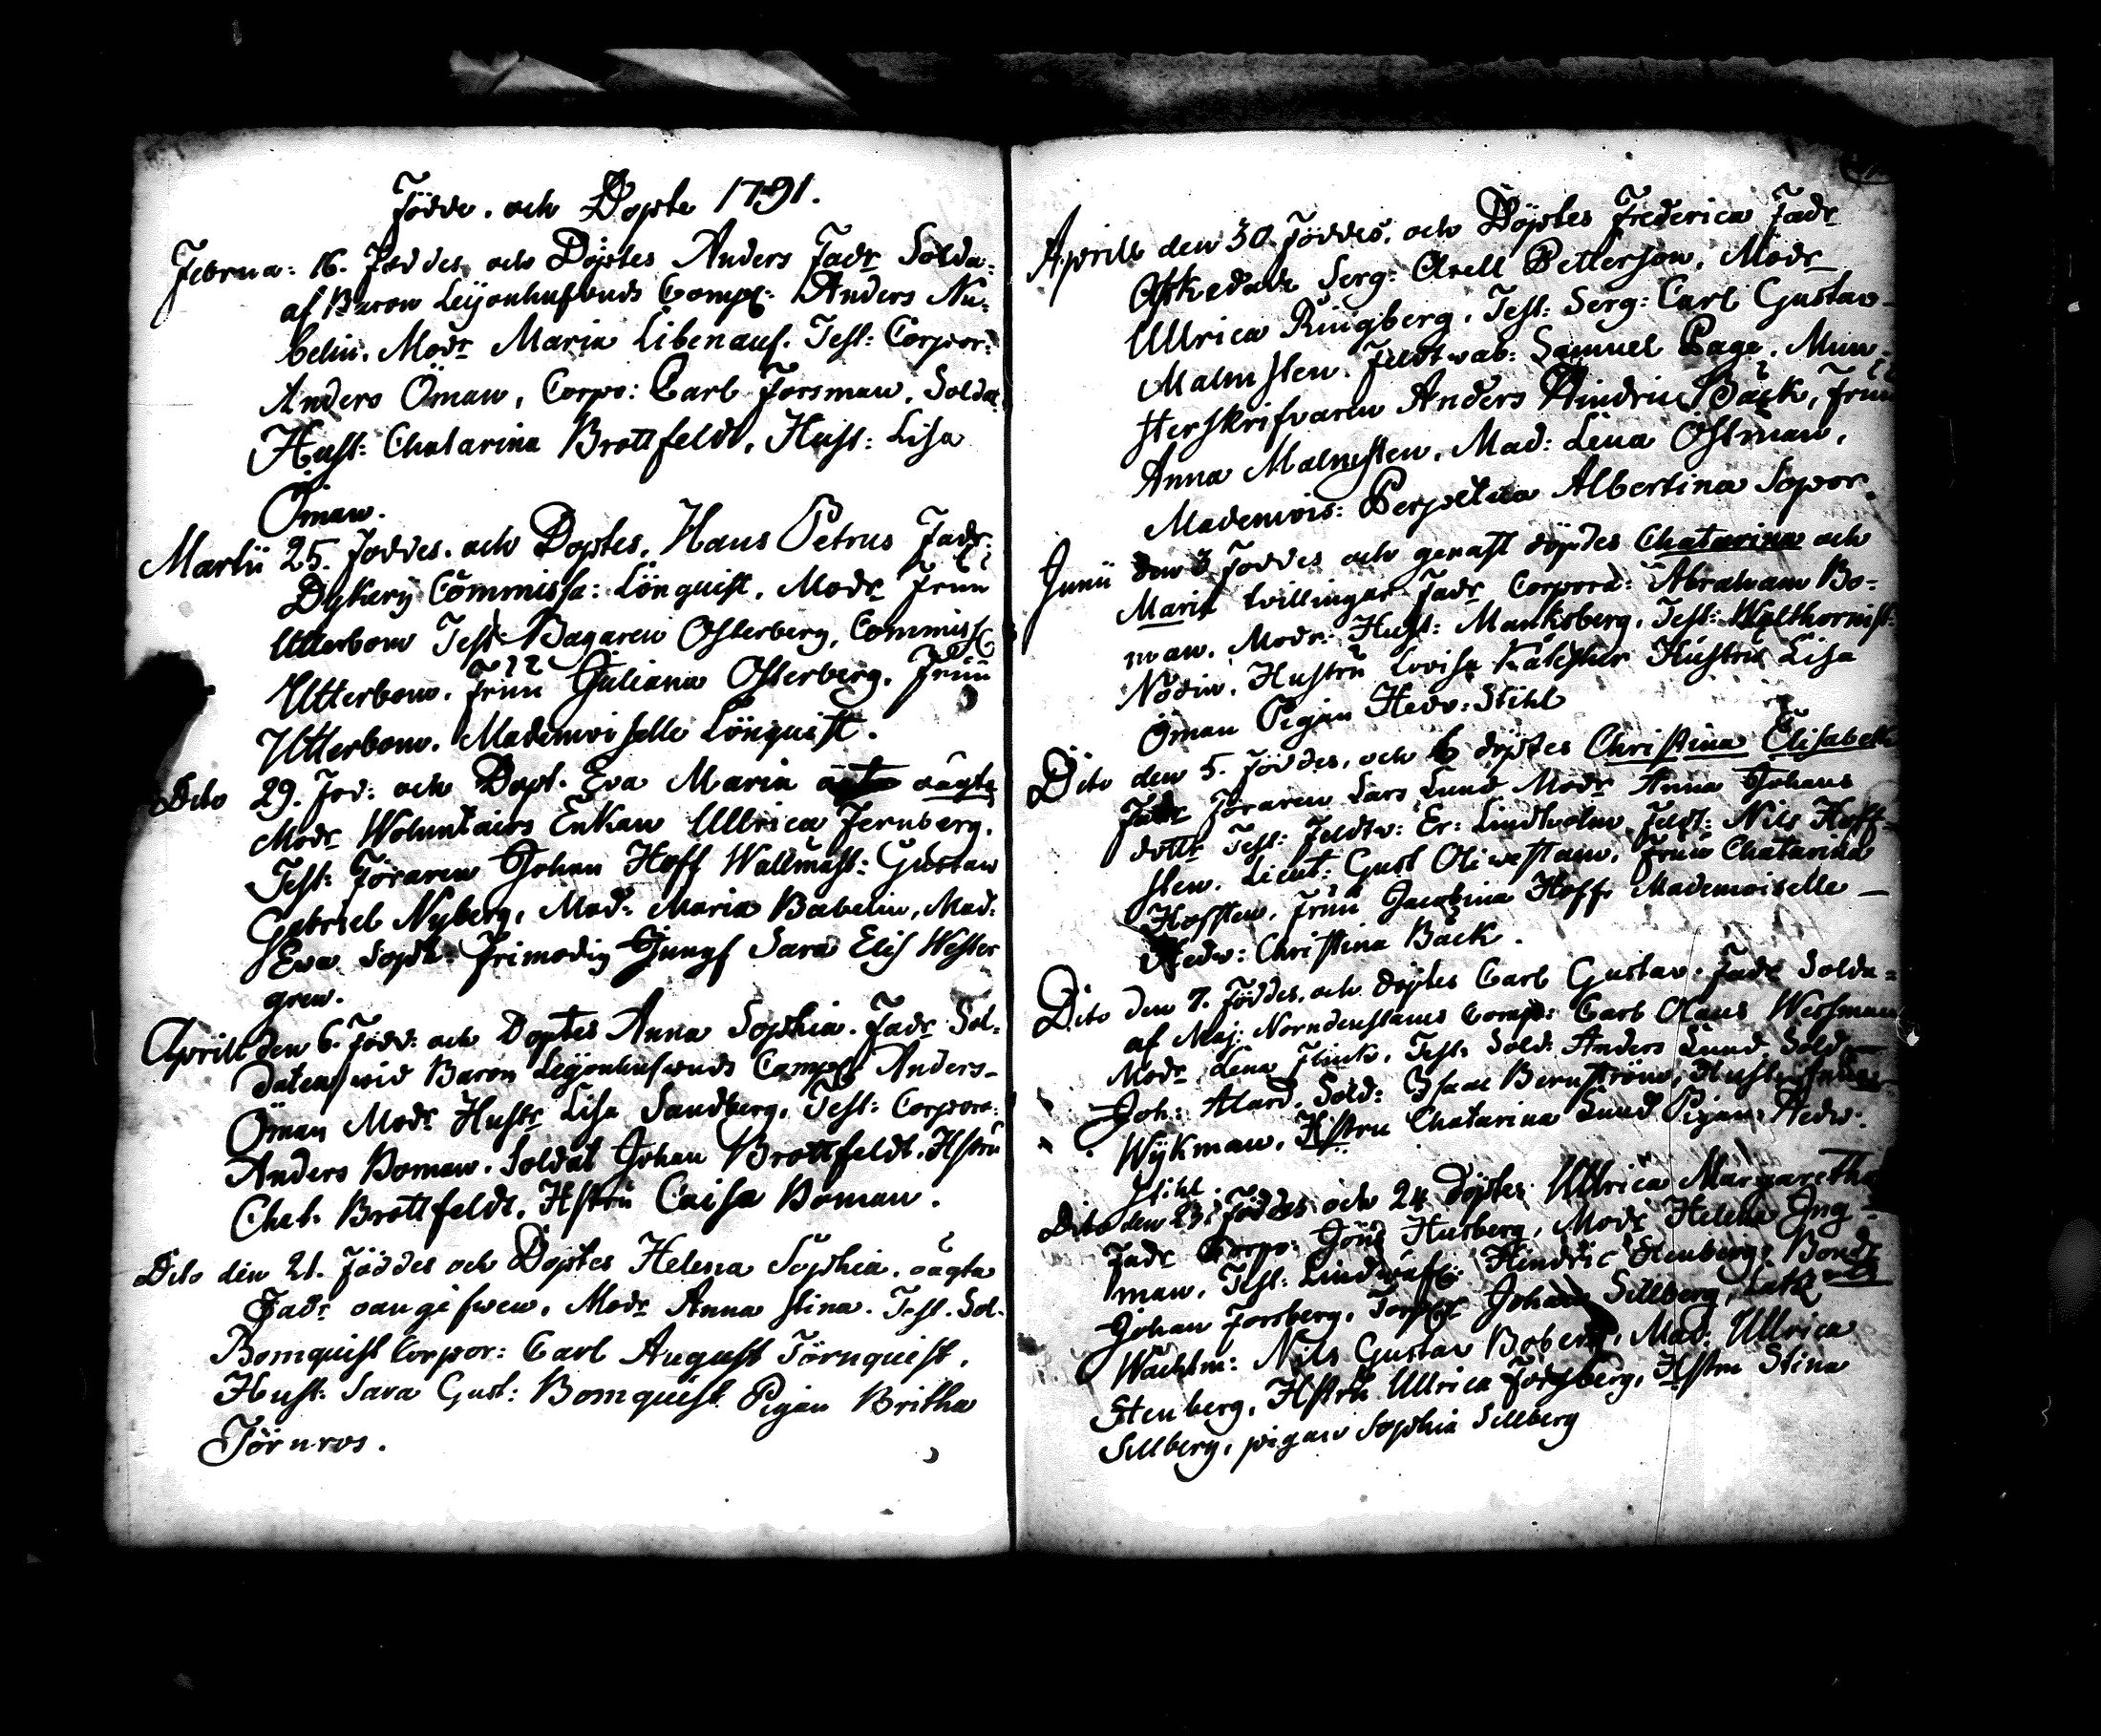 Födde. och Döpte 1791.
Februa: 16. Föddes och Döptes Anders Fadr Solda:
af Baron Leijonhufvuds Comp: Anders Nu-
belin. Modr Maria Libenauf. Test: Corpor:
Anders Öman, Corpo: Carl Forsman, Solda:
Hust: Chatarina Brottfeldt, Hust: Lisa
Öman.
Martii 25. Foddes. och Doptes, Hans Petrus Fadr:
Dykery Commissa: Lönquist, Modr Fruu
Utterbom Test: Bagaren Osterberg, Commiss
Utterbom. Fruu Juliana Osterberg. Fruu
Utterbom. Mademoiselle Lönquist.
Dito 29. Fod: och Dopt. Eva Maria oägta
Modr Woluntairs Enkan Ullrica Fernberg.
Test: Föraren Johan Hoff Wallmäst: Gustaw
Gabriel Nyberg, Mad: Maria Babelin, Mad:
Eva Soph: Frimodig Jungf Sara Elis Wester
gren.
Aprill den 6. Född: och Doptes Anna Sophia. Fadr Sol-
daten wid Baron Leijonhufwuds Comp Anders-
Öman Modr Hustr Lisa Sandberg, Test: Corpora:
Anders Boman. Soldat Johan Brottfeldt, Hstru
Chat. Brottfeldt, Hstru Caisa Boman.
Dito den 21. Föddes och Döptes Helena Sophia. oägta
Fadr oangifwen, Modr Anna Stina. Test. Sol.
Bomquist Corpor: Carl August Törnquist,
Hust: Sara Gust: Bomquist Pigan Britha
Törnros.
Aprill den 30. Föddes. och Döptes Frederica Fadr
Afskedade Serg: Axell Petterson, Modr
Ullrica Ringberg, Test: Serg: Carl Gustav
Malmsten. Feldtwab: Samuel Page. Mun-
sterskrifvaren Anders Hindric Bäck, Fruu
Anna Malmsten, Mad: Lena Östman,
Mademois: Perpetua Albertina Sopor.
Junii den 3 Foddes och genast döptes Chatarina och
Maria tvillingar Fadr Corpora: Abraham Bo-
man. Modr: Hust: Manksberg. Test: Walthornist:
Nödin, Hustru Lovisa Hustru Lisa
Öman Pigan Hedv: Stihl
Dito den 5. Föddes, och 6 döptes Christina Elisabeth
Fadr Föraren Lars Lund Modr Anna Johans
dottr Test: Feldtv: Er: Lindholm, Feldt: Nils Hoff-
sten. Lieut: Gust Olivestam. Fruu Chatarina
Hoffsten, Fruu Jacobina Hoff, Mademoiselle
Hedw: Christina Bäck.
Dito den 7. Föddes. och döptes Carl Gustav. Fadr Solda-
af Maj: Norndenstams Comp: Carl Olaus Wessman
Modr Lena Flink. Test: Sold: Anders Lund. Sold
Joh: Alard, Sold: Isaac Bernström, Hust:
Wijkman, Hstru Chatarina Lund Pigan Hedw:
Stihl.
Dito den 23. Föddes och 24 döptes Ullrica Margaretha
Fadr Corpo: Jöns Husberg, Modr Helena Ing-
man, Test: Hindric Stenberg, Bondr
Johan Forsberg, Torp Johan Sellberg,
Wachtm: Nils Gustav Boberg, Mad: Ullrica
Stenberg, Hstru Ullrica Forsberg, Hstru Stina
Sellberg, pigan Sophia Sellberg